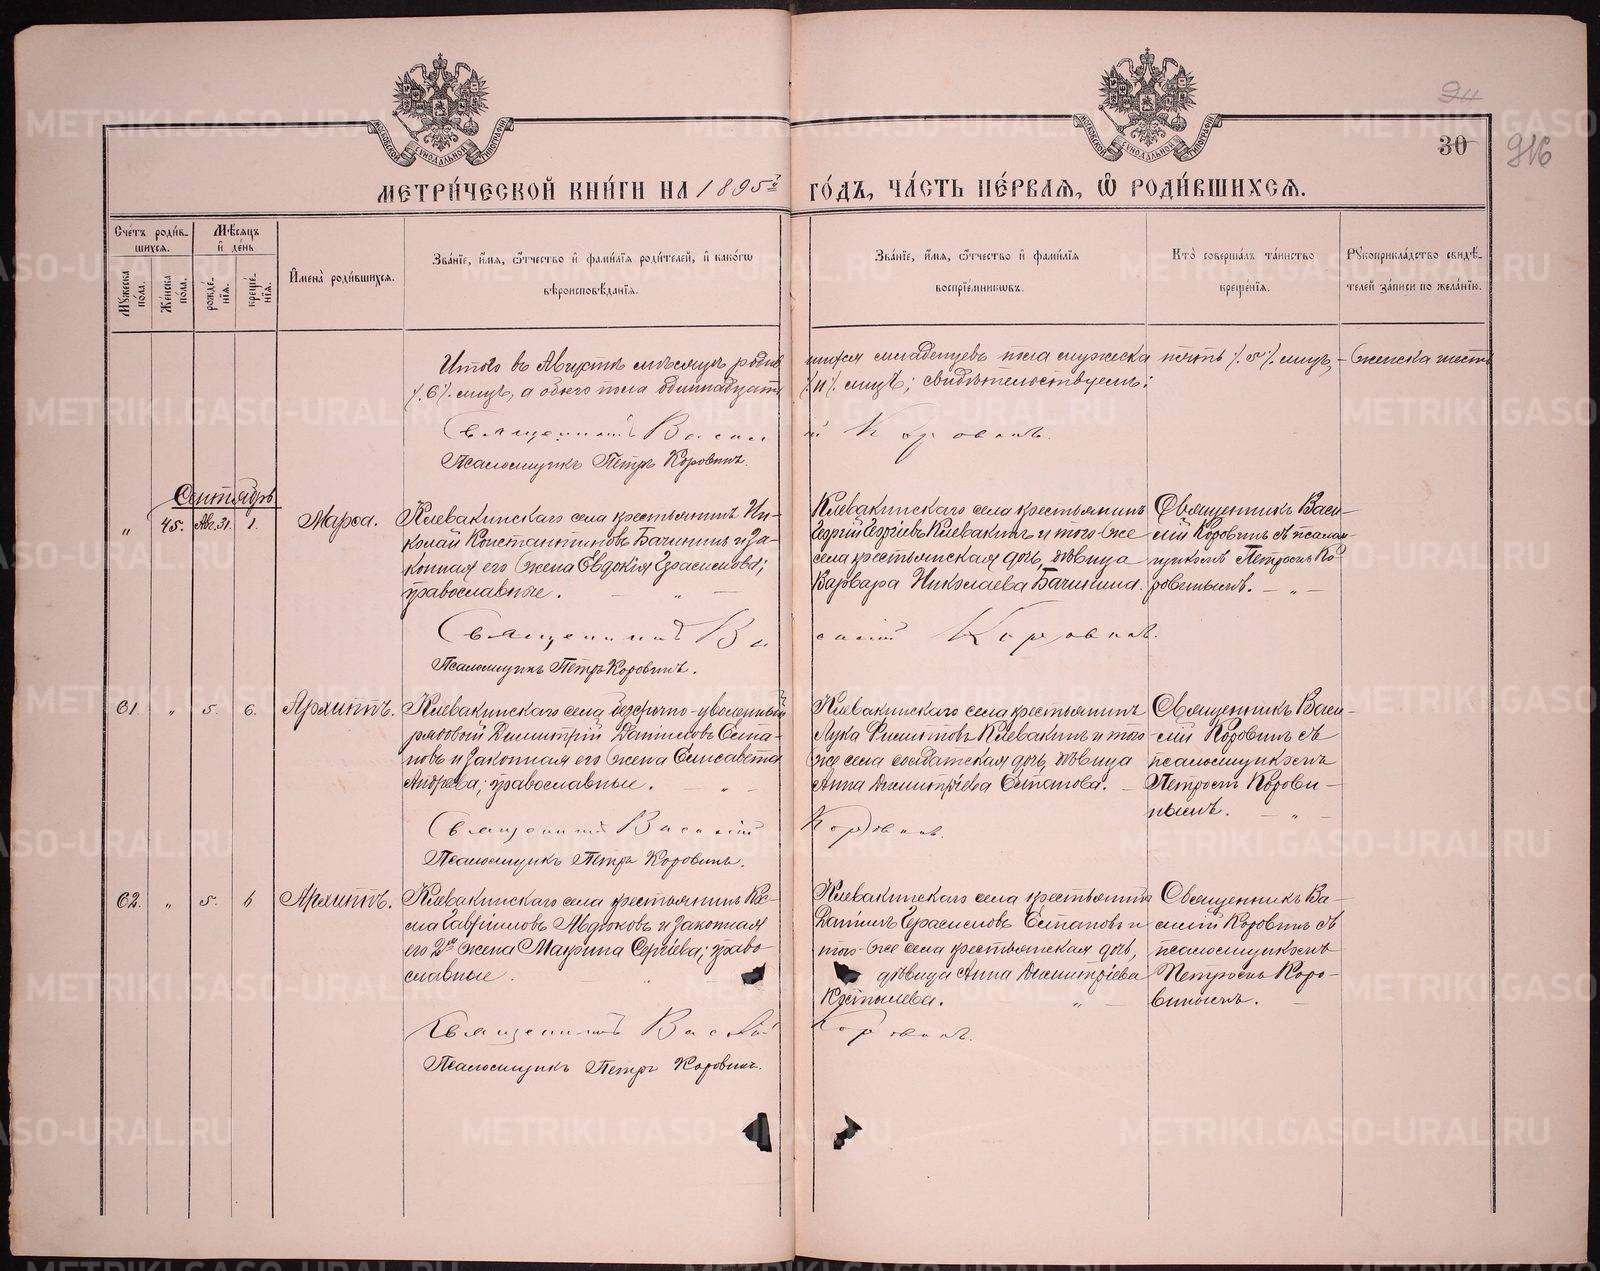 МОСКОВСКОЙ СѴНОДАЛЬНОЙ ТИПОГРАФІИ
МОСКОВСКОЙ СѴНОДАЛЬНОЙ ТИПОГРАФІИ
30
916
МЕТРИ́ЧЕСКОЙ КНИ́ГИ НА 1895й ГО́ДЪ, ЧА́СТЬ ПЕ́РВАЯ, Ѡ РОДИ́ВШИХСЯ.
Сче́тъ роди́в-
шихся.
Мѣ́сяцъ
и҆ де́нь
Му́жеска по́ла.
Же́нска по́ла.
рожде́-
нїя.
креще́-
нїя.
И҆мена̀ роди́вшихся.
Зва́нїе, и҆́мя, ѻ҆́тчество и҆ фами́лїя роди́телей, и҆ како́гѡ
вѣроисповѣ́данїя.
Зва́нїе, и҆́мя, ѻ҆́тчество и҆ фами́лїя
воспрїе́мникѡвъ.
Кто̀ соверша́лъ та́инство
креще́нїя.
Рꙋкоприкла́дство свидѣ́-
телей за́писи по жела́нїю.
Итого въ Августѣ мѣсяцѣ родив шихся младенцевъ пола мужеска пять /.5/. лицъ, - женска шесть
/.6/. лицъ, а обоего пола одиннадцать /.11/. лицъ; свидѣтельствуемъ:
Священникъ Василій Коровинъ.
Псаломщикъ Петръ Коровинъ.
Сентябрь
" 45. Авг. 31. 1. Марѳа.
Клевакинскаго села крестьянинъ Ни-
колай Константиновъ Бачининъ и за-
конная его жена Евдокія Герасимова;
православные. — " —
Клевакинскаго села крестьянинъ
Георгій Георгіевъ Клевакинъ и того же
села крестьянская дочь, дѣвица
Варвара Николаева Бачинина.
Священникъ Васи-
лій Коровинъ съ псалом-
щикомъ Петромъ Ко-
ровинымъ. — " —
Священникъ Василій Коровинъ.
Псаломщикъ Петръ Коровинъ.
61. " 5. 6. Архиппъ.
Клевакинскаго села безсрочно-уволенный
рядовой Димитрій Даніиловъ Естю-
новъ и законная его жена Елисавета
Андреева; православные. — " —
Клевакинскаго села крестьянинъ
Лука Филиповъ Клевакинъ и того
же села солдатская дочь, дѣвица
Анна Димитріева
Священникъ Васи-
лій Коровинъ съ
псаломщикомъ
Петромъ Корови-
нымъ. — " —
Священникъ Василій Коровинъ.
Псаломщикъ Петръ Коровинъ.
62. " 5. 6. Архиппъ.
Клевакинскаго села крестьянинъ Кос-
ма Гавріиловъ Авдюковъ и законная
его 2я жена Маврина Сергіева; право-
славные.
Клевакинскаго села крестьянинъ
Даніилъ Герасимовъ и
того же села крестьянская дочь,
дѣвица Анна Димитріева
Костылева. "
Священникъ Ва-
силій Коровинъ съ
псаломщикомъ
Петромъ Коро-
винымъ. —
Священникъ Василій Коровинъ.
Псаломщикъ Петръ Коровинъ.
METRIKI.GASO-URAL.RU